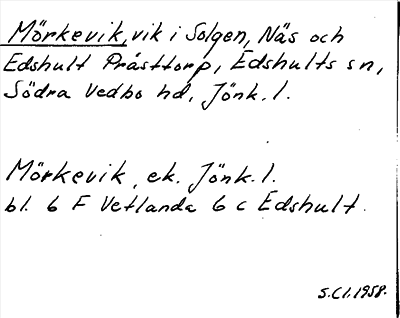 Mörkevik, vik i Solgen, Näs och
Edshult Prästtorp, Edshults sn,
Södra Vedbo hd, Jönk. l.
Mörkevik, ek. Jönk. l.
bl. 6 F Vetlanda 6 c Edshult.
S.Cl. 1958.